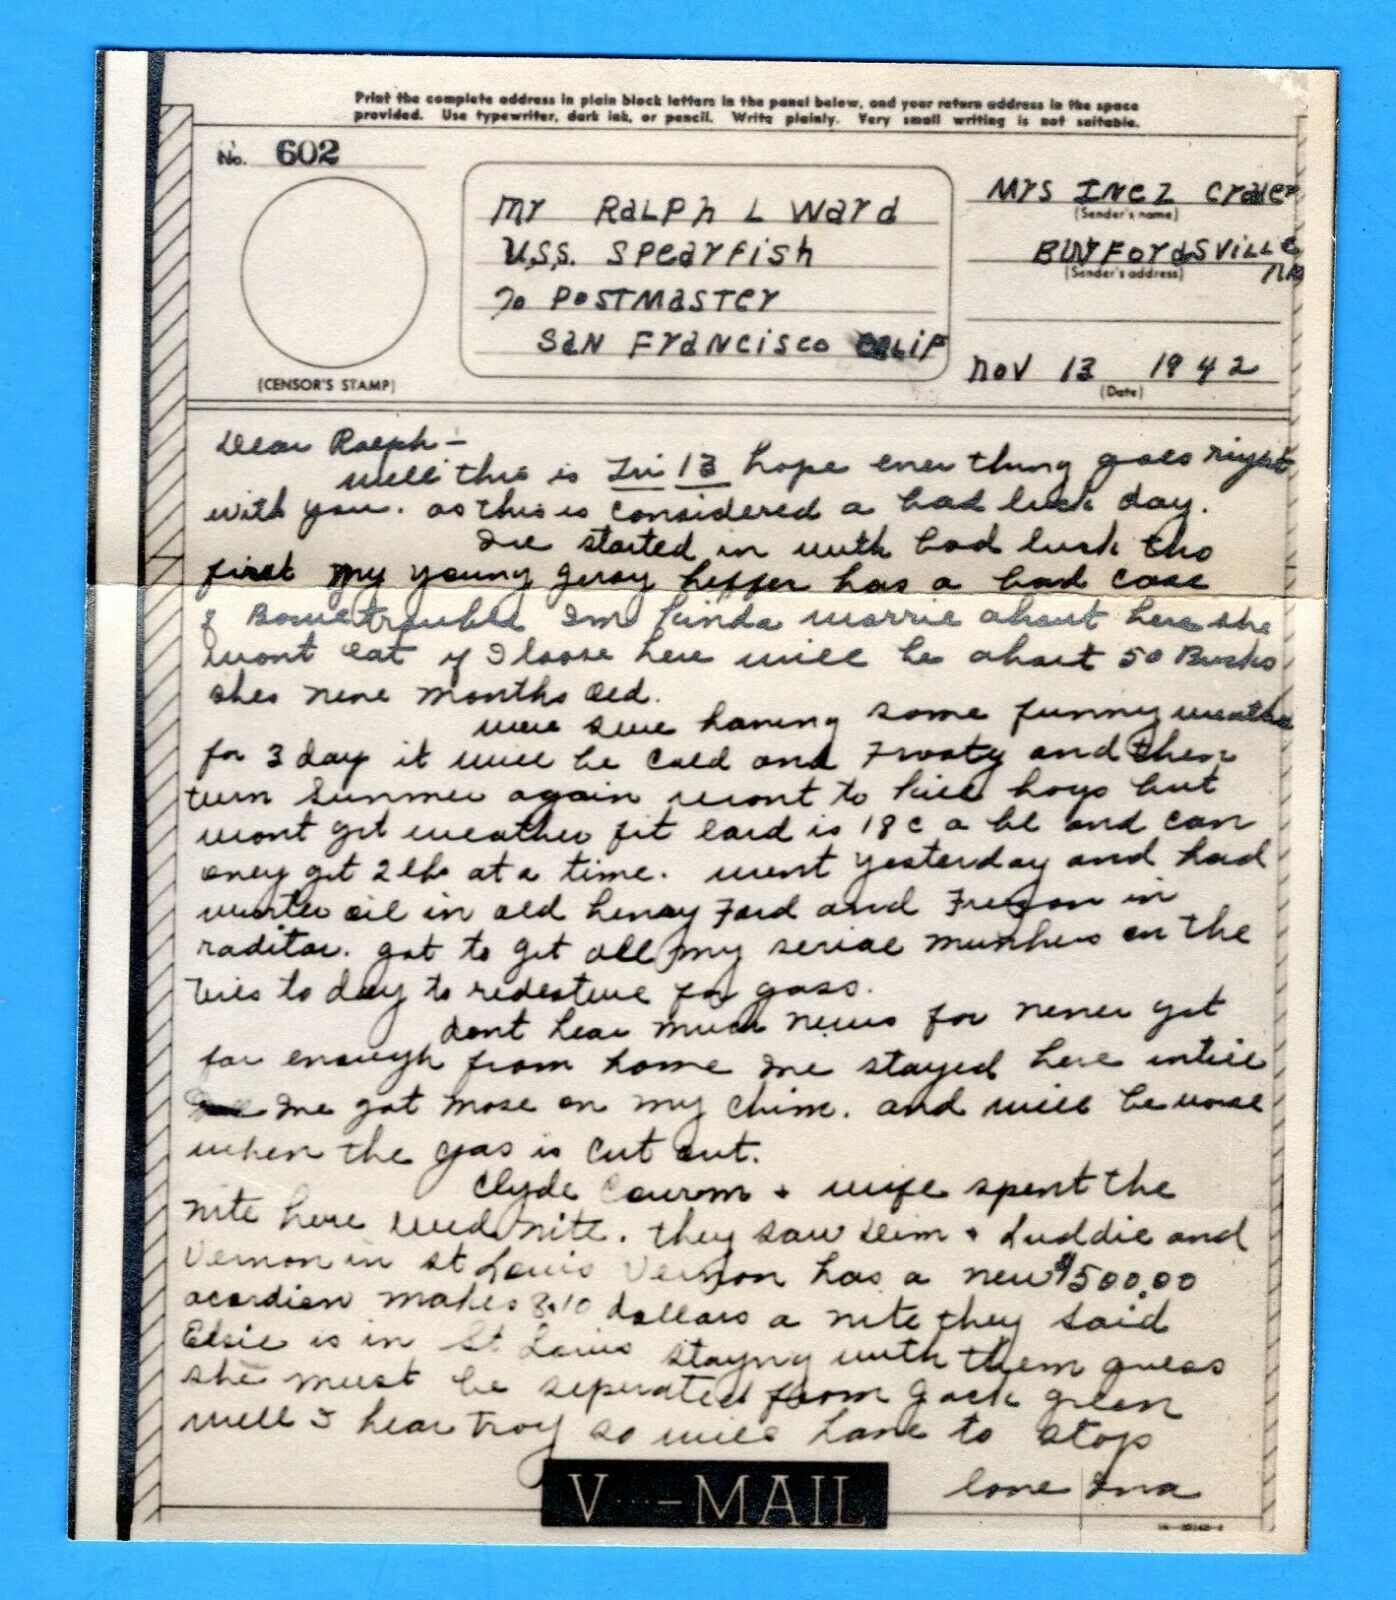 Print the complete address in plain block letters in the panel below, and your return address in the space
provided. Use typewriter, dark ink, or pencil. Write plainly. Very small writing is not suitable.
No. 602
(CENSOR'S STAMP)
Mr RaLPh L Ward
U.S.S. Spearfish
To PostMaster
San Francisco Calif
Mrs INez
(Sender's name)
(Sender's address)
Nov 13 1942
(Date)
Dear Ralph -
well this is Fri 13 hope ever thing goes right
with you. as this is considered a bad luck day.
Ive started in with bad luck tho
first my young jersy heffer has a bad case
of Bowel trouble Im kinda worrie about here she
wont eat if I loose here will be about 50 Bucks
shes nine months old.
were sure having some funny weather
for 3 day it will be cold and Frosty and then
turn Summer again want to kill hogs but
wont get weather fit lard is 18c a lb and can
oney get 2 lbs at a time. went yesterday and had
winter oil in old henry Ford and Freson in
raditor. got to get all my serial numbers on the
tires to day to redesture for gass.
dont hear much news for never get
far enough from home Ive stayed here intill
Ive got moss on my chim. and will be worse
when the gas is cut out.
Clyde & wife spent the
nite here wed nite. they saw Slim & Luddie and
Vernon in St Louis Vernon has a new $500.00
acordien makes 8.10 dollars a nite they said
Elsie is in St Louis staying with them guess
she must be seperated from Jack Green
well I hear troy so will have to stop
love Ina
V···–MAIL